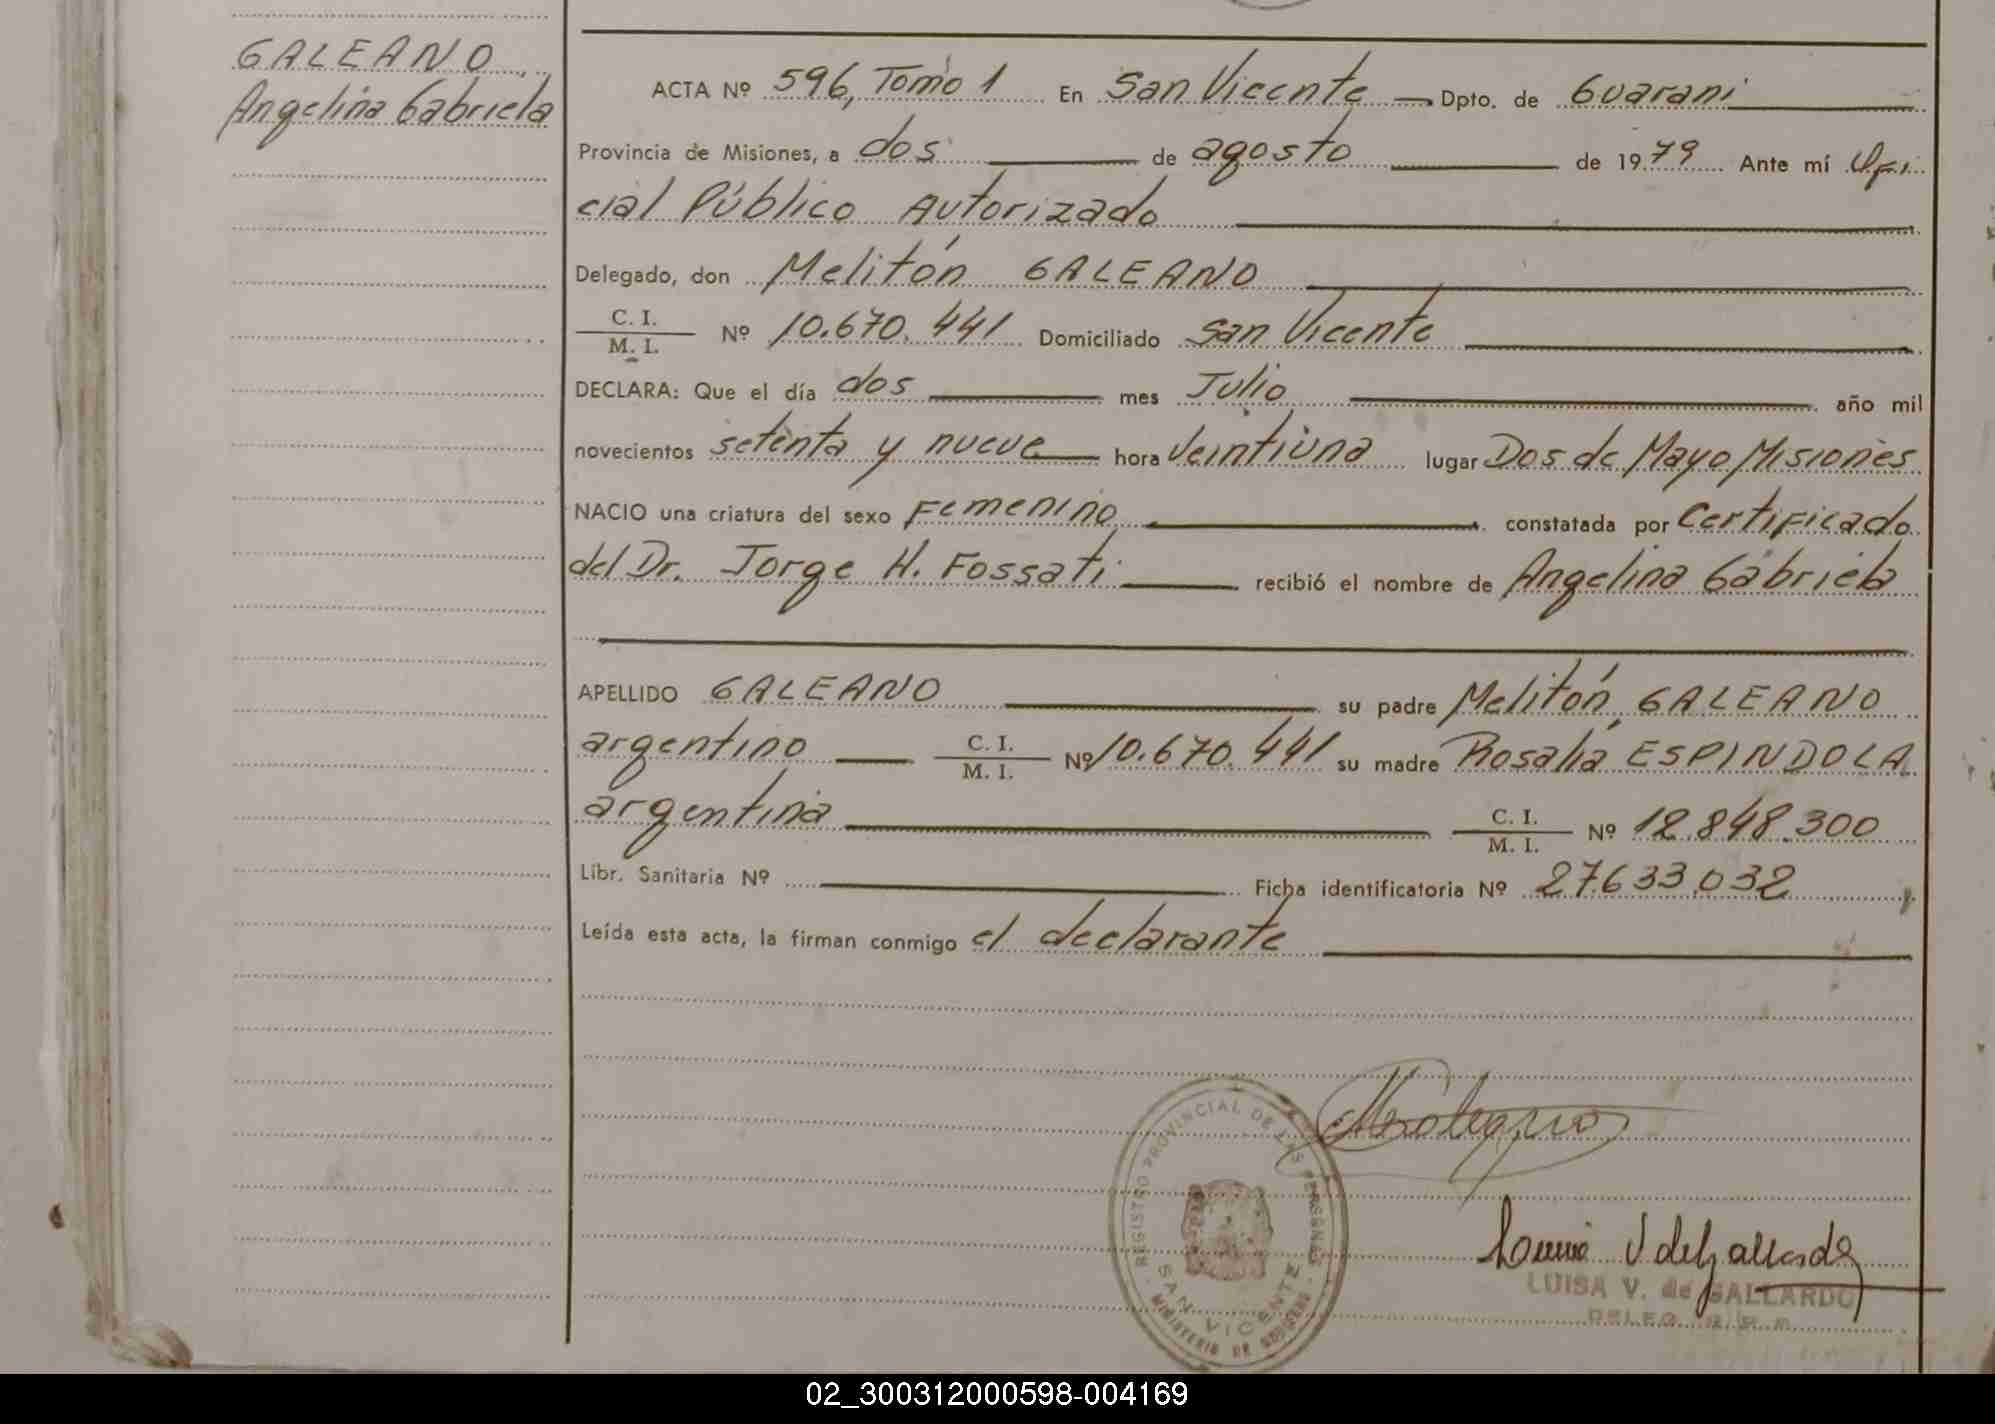 GALEANO
Angelina Gabriela
ACTA Nº 596, Tomo 1 En San Vicente Dpto. de Guaraní
Provincia de Misiones, a dos de agosto de 1979 Ante mí Ofi
cial Público Autorizado
Delegado, don Melitón GALEANO
C. I.
M. I. Nº 10.670.441 Domiciliado San Vicente
DECLARA: Que el día dos mes Julio año mil
novecientos setenta y nueve hora veintiuna lugar Dos de Mayo Misiones
NACIO una criatura del sexo Femenino constatada por Certificado
del Dr. Jorge H. Fossati recibió el nombre de Angelina Gabriela
APELLIDO GALEANO su padre Melitón GALEANO
argentino C. I. M. I. Nº 10.670.441 su madre Rosalía ESPINDOLA
argentina C. I. M. I. Nº 12.848.300
Libr. Sanitaria Nº Ficha identificatoria Nº 27.633.032
Leída esta acta, la firman conmigo el declarante
REGISTRO PROVINCIAL DE LAS PERSONAS
SAN VICENTE
MINISTERIO DE GOBIERNO
LUISA V. de GALLARDO
02_300312000598-004169